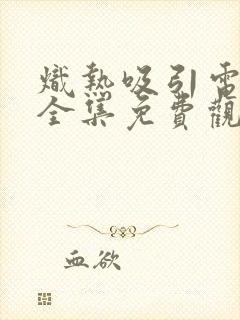 熾熱吸引電
全集免費觀
血欲